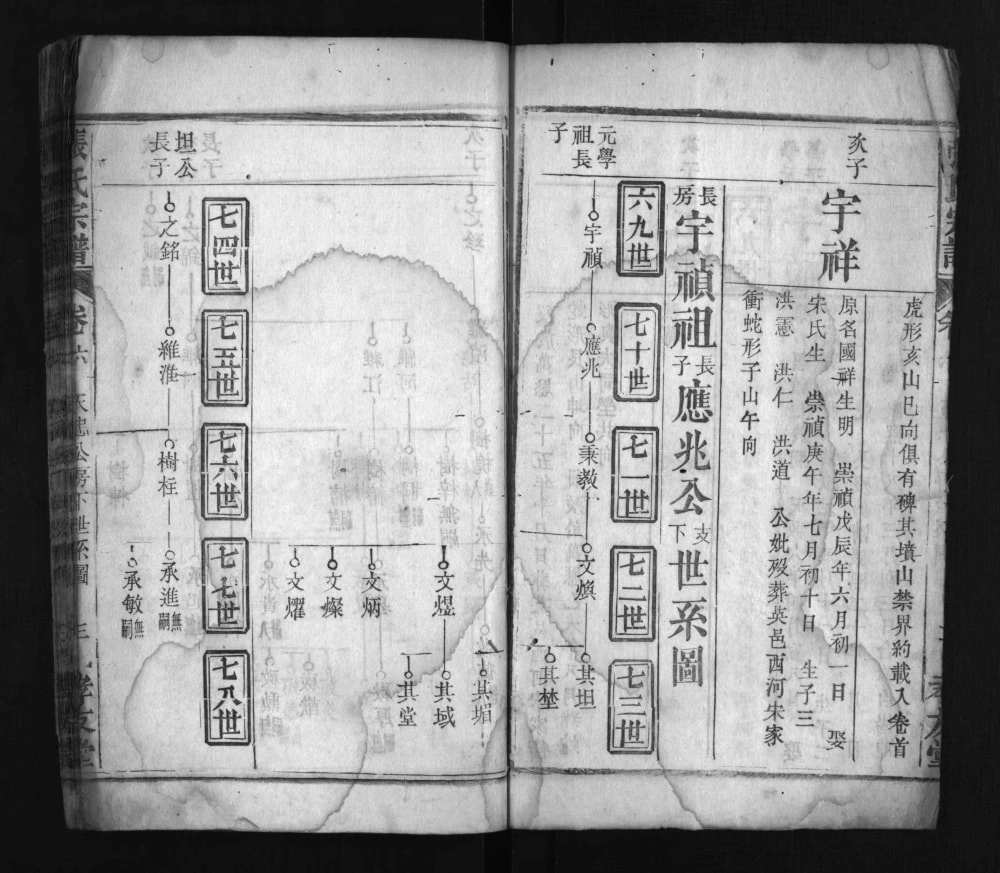 虎形亥山巳向俱有碑其墳山禁界約載入卷首
次子
宇祥
原名國祥生明 崇禎戊辰年六月初一日 娶
宋氏生 崇禎庚午年七月初十日 生子三
洪憲 洪仁 洪道 公妣歿葬吳邑西河宋家
衝蛇形子山午向
長房宇禎祖長子應兆公支下世系圖
六九世
七十世
七一世
七二世
七三世
元學
祖長
子
宇禎
應兆
秉教
文煥
其坦
其埜
其堳
文煜
其域
其堂
文炳
文燦
文燿
七四世
七五世
七六世
七七世
七八世
坦公
長子
之銘
維淮
樹枉
承進無嗣
承敏無嗣
張氏宗譜
卷六